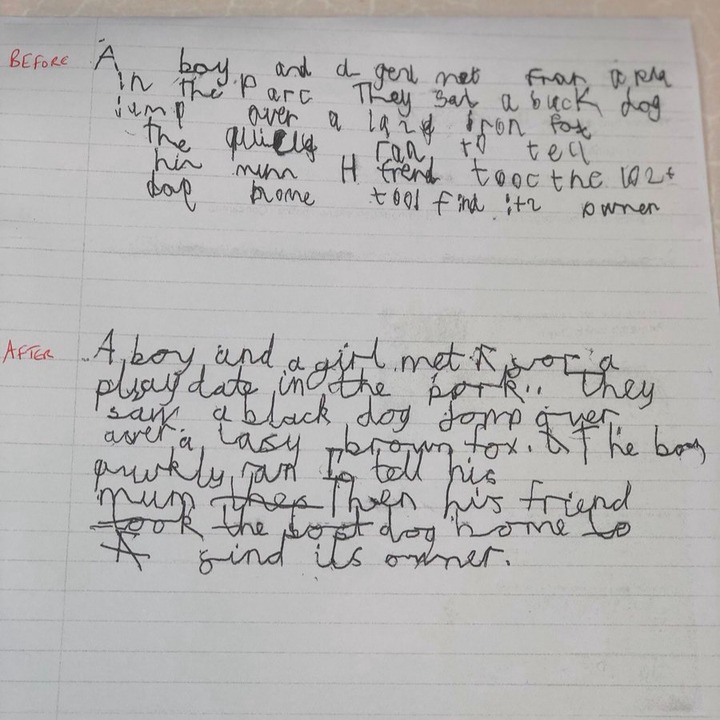 BEFORE A boy and a gerl met from a pla
in the parc They sat a back dog
jump over a lazy iron fox
the quicly ran to tell
hin mum H frend tooc the lost
dog home tool find itz owner
AFTER A boy and a girl met for a
playdate in the park. they
saw a black dog jomp over
over a lasy brown fox. The boy
quikly ran to tell his
mum then Then his friend
took the lost dog home to
find its owner.